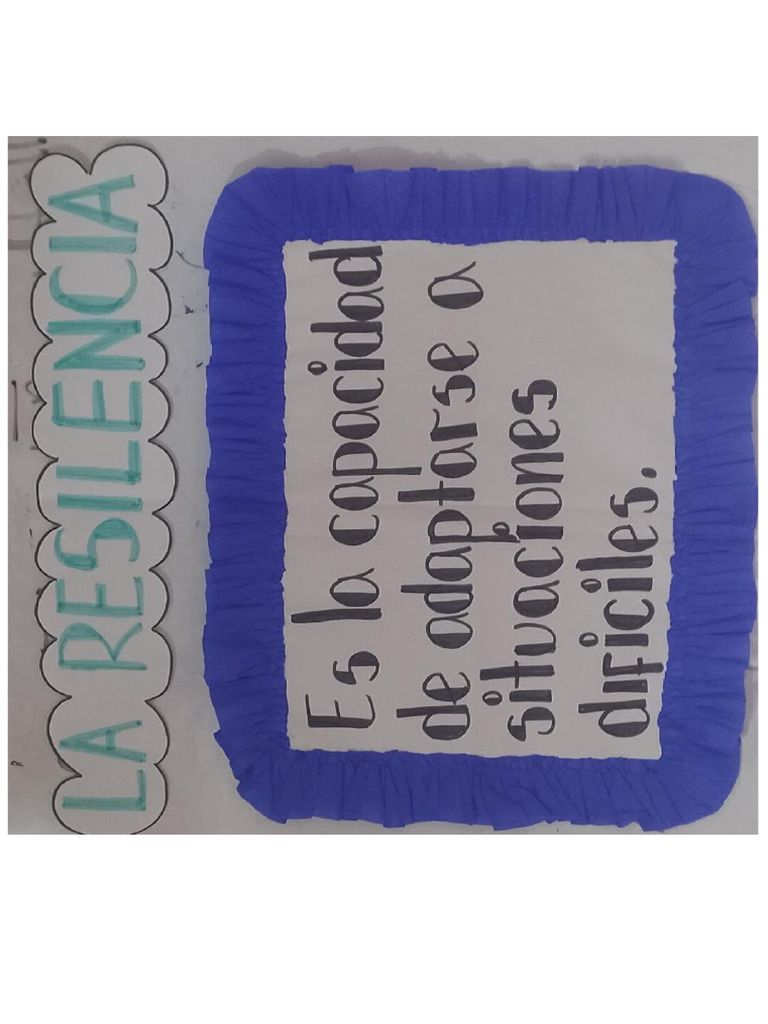 LA RESILENCIA
Es la capacidad
de adaptarse a
situaciones
dificiles.